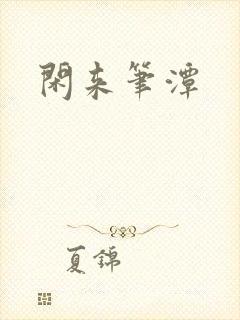 閑来筆潭
夏錦